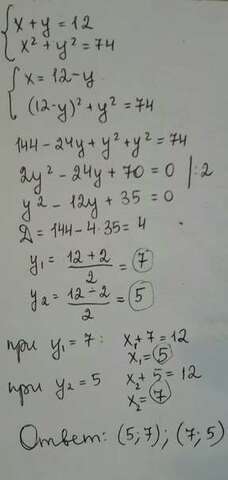 x + y = 12
x² + y² = 74
x = 12 - y
(12 - y)² + y² = 74
144 - 24y + y² + y² = 74
2y² - 24y + 70 = 0 | :2
y² - 12y + 35 = 0
D = 144 - 4·35 = 4
y₁ = (12 + 2)/2 = 7
y₂ = (12 - 2)/2 = 5
при y₁ = 7: x₁ + 7 = 12
x₁ = 5
при y₂ = 5 x₂ + 5 = 12
x₂ = 7
Ответ: (5; 7); (7; 5)